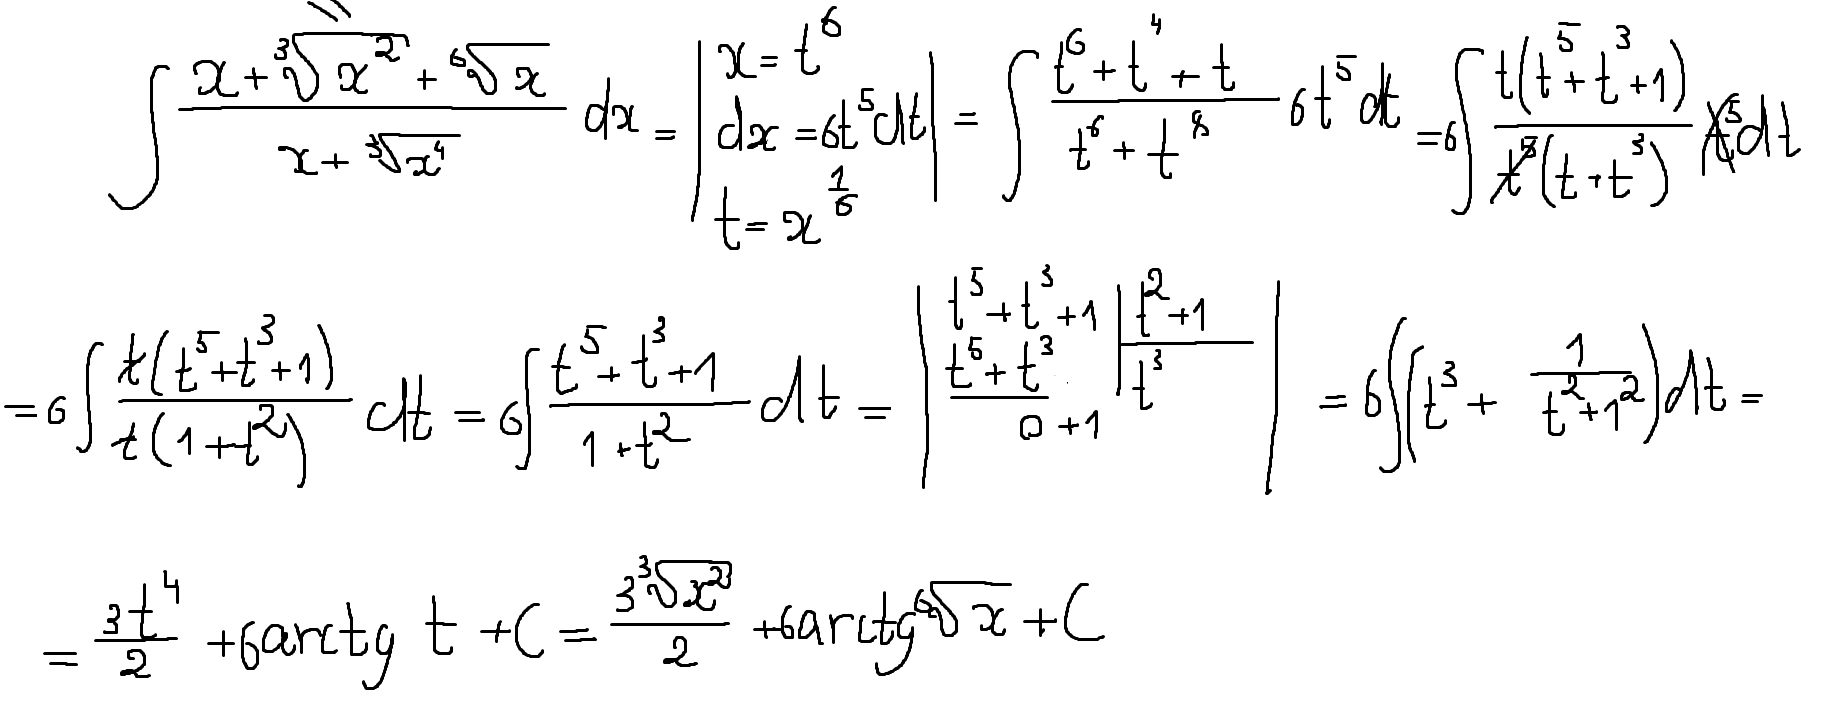 ∫ (x + ∛(x²) + ⁶√x)/(x + ∛(x⁴)) dx = | x = t⁶; dx = 6t⁵dt; t = x^(1/6) | = ∫ (t⁶ + t⁴ + t)/(t⁶ + t⁸) 6t⁵ dt = 6∫ t(t⁵ + t³ + 1)/(t⁵(t + t³)) t⁵ dt
= 6∫ t(t⁵ + t³ + 1)/(t(1 + t²)) dt = 6∫ (t⁵ + t³ + 1)/(1 + t²) dt = | t⁵ + t³ + 1 | t² + 1; t⁵ + t³ | t³; 0 + 1 | = 6∫(t³ + 1/(t² + 1²))dt =
= 3t⁴/2 + 6arctg t + C = 3∛(x²)/2 + 6arctg ⁶√x + C